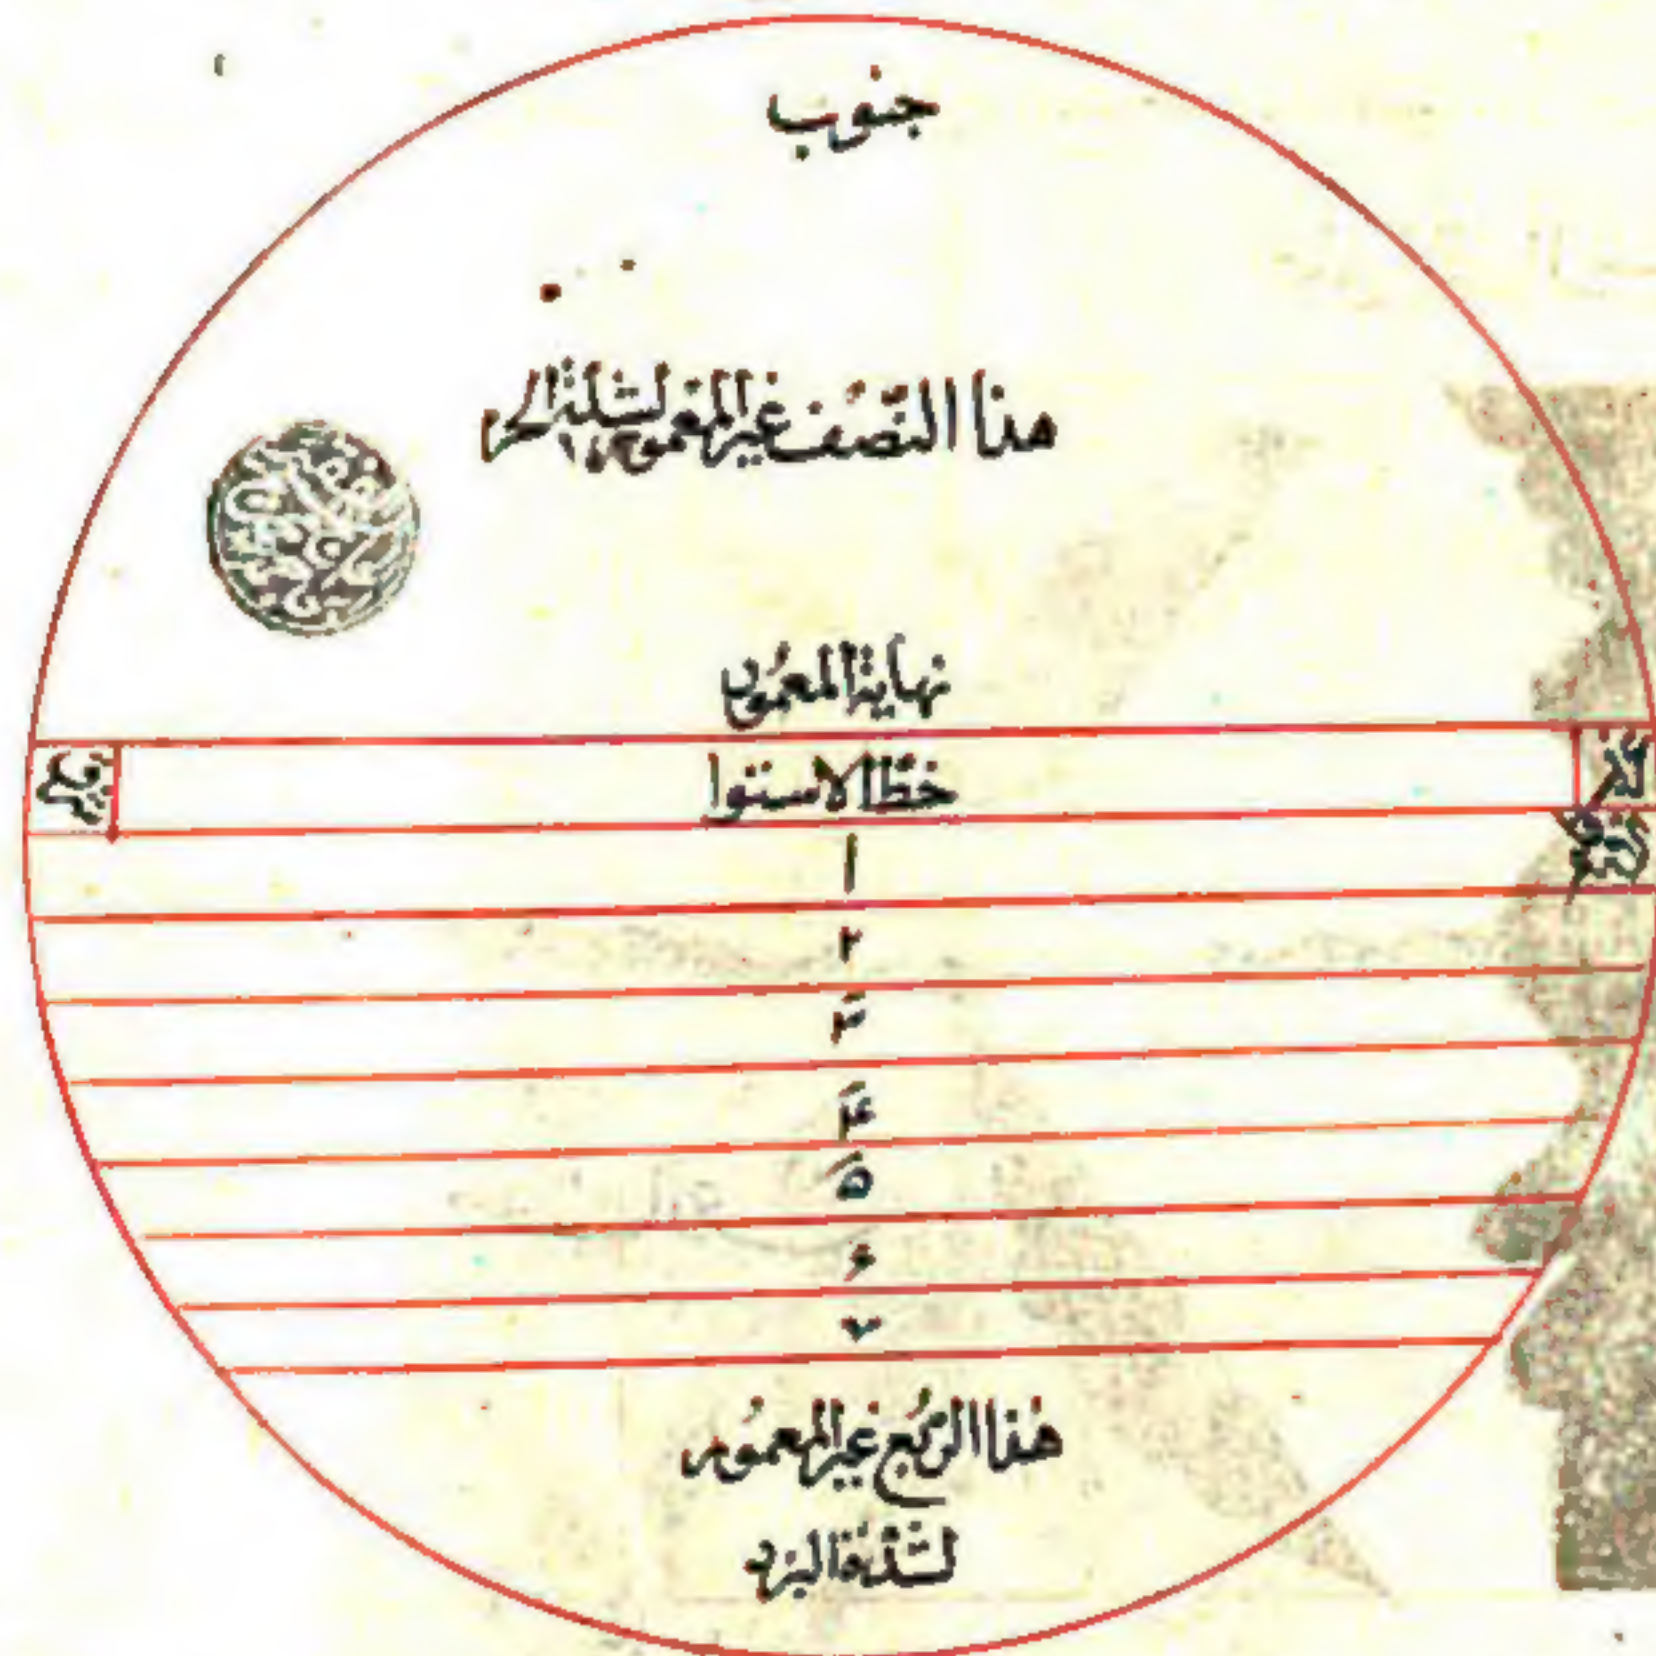 جنوب
هذا النّصف غير المعمور لشدة الحر
نهاية المعمور
خطّ الاستوا
ا
٢
٣
۴
۵
۶
٧
هٰذا الرُّبع غير المعمُور
لشدّة البرد